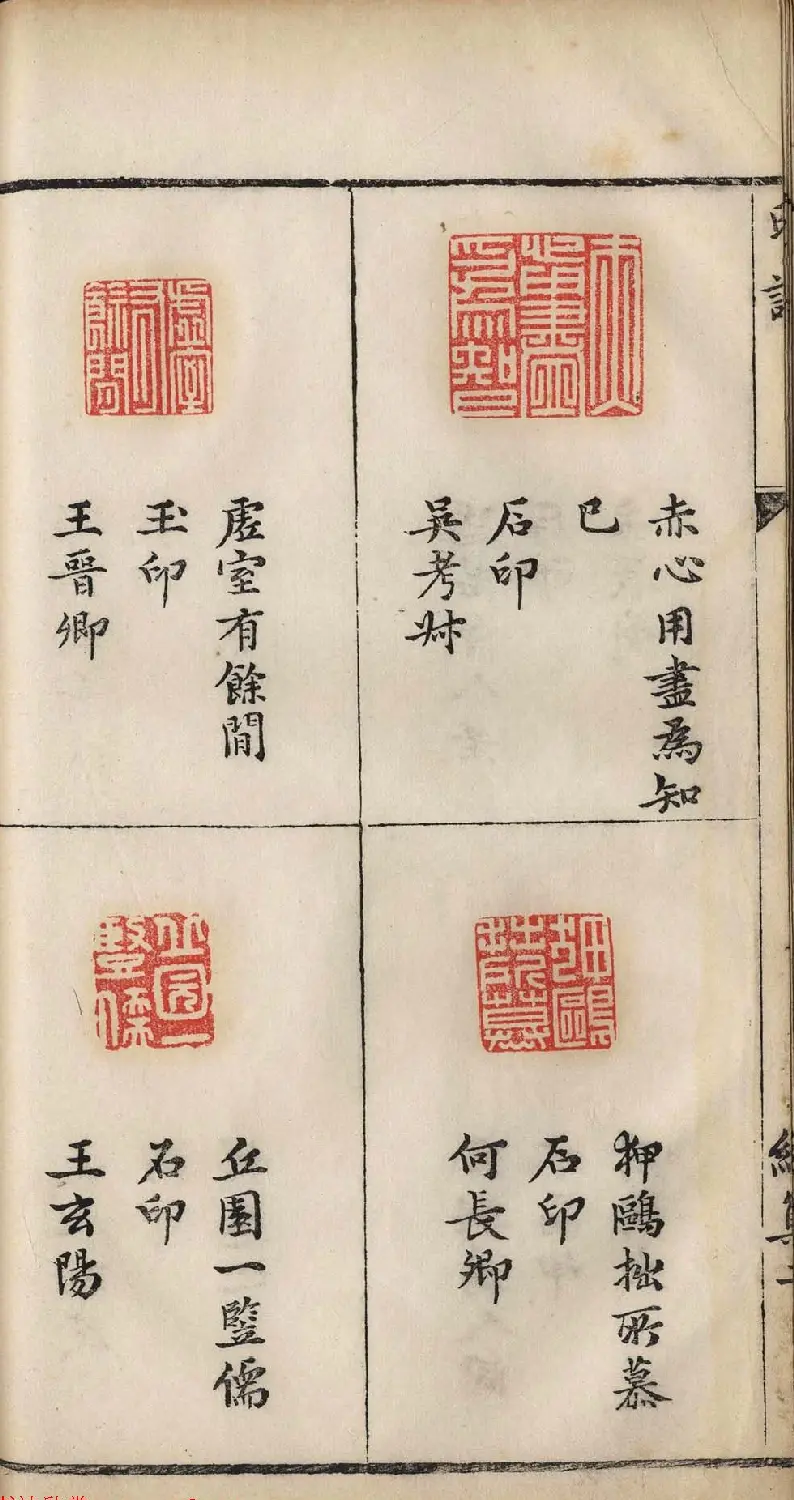 赤心用盡為知
已
石印
吳考叔
虛室有餘閒
玉印
王晉卿
狎鷗拙所慕
石印
何長卿
丘園一豎儒
石印
王玄陽